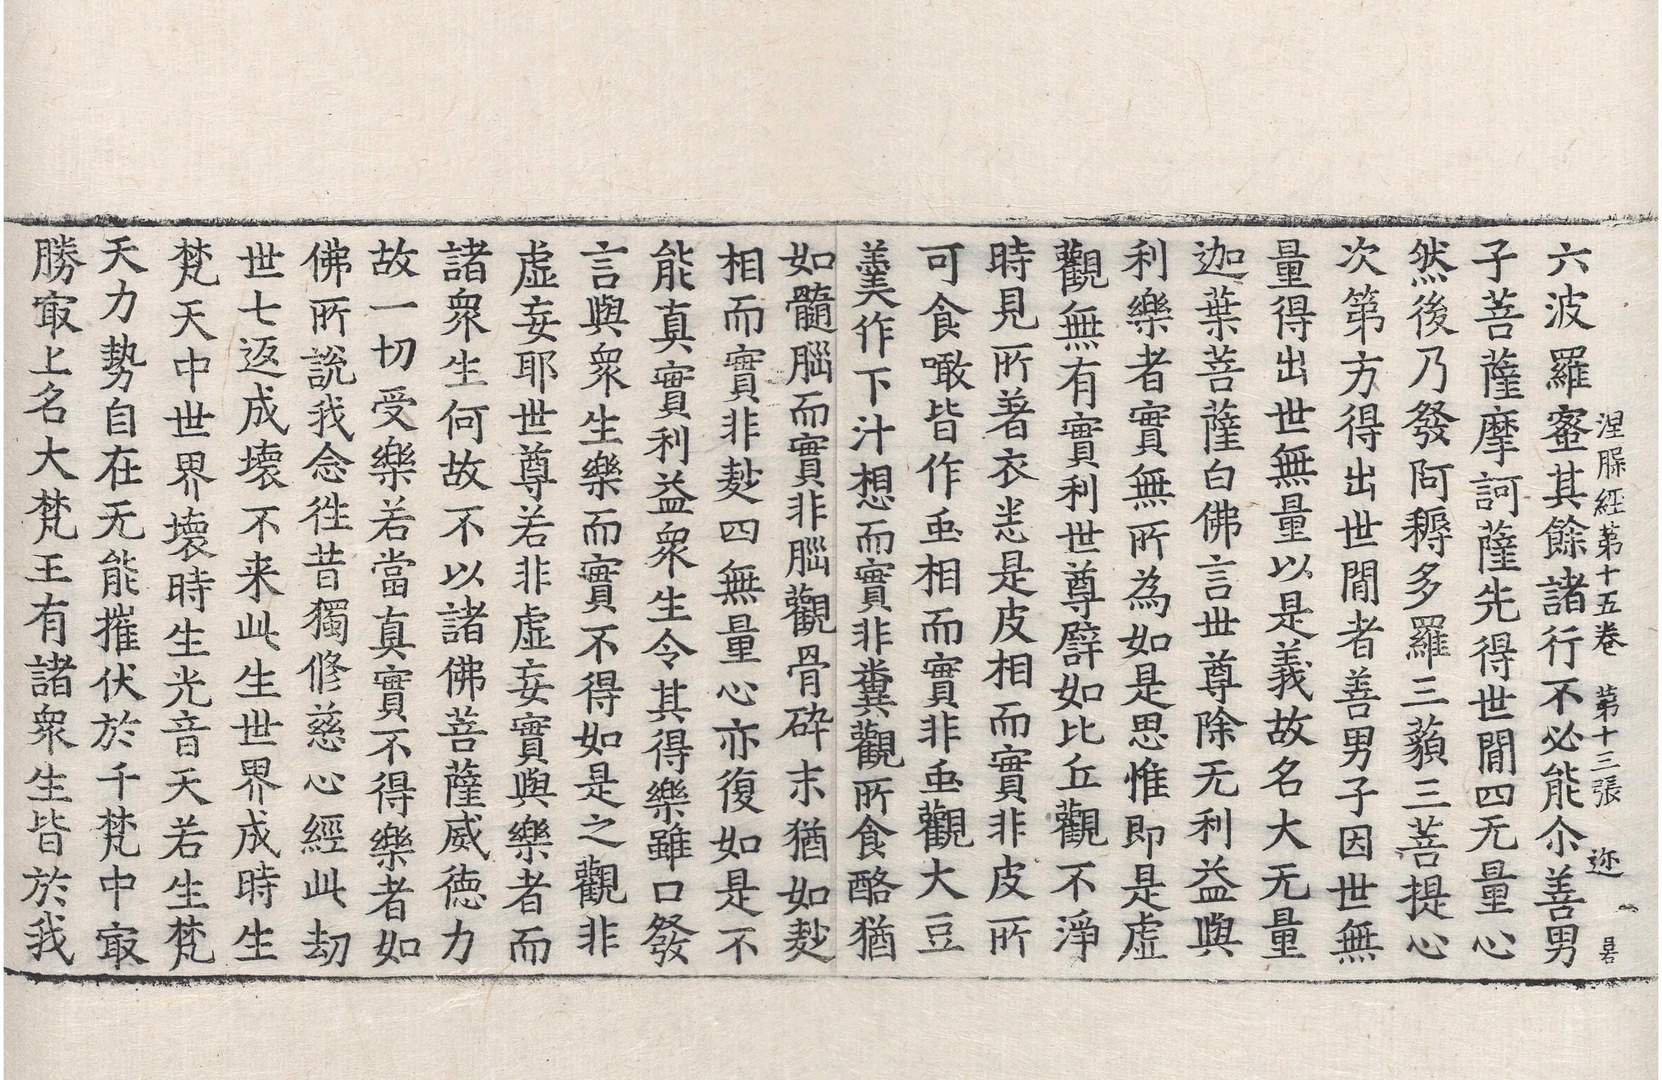 涅槃經第十五卷　第十三張　迩
六波羅蜜其餘諸行不必能尒善男
子菩薩摩訶薩先得世閒四无量心
然後乃發阿耨多羅三藐三菩提心
次第方得出世閒者善男子因世無
量得出世無量以是義故名大无量
迦葉菩薩白佛言世尊除无利益與
利樂者實無所為如是思惟即是虛
觀無有實利世尊譬如比丘觀不淨
時見所著衣悉是皮相而實非皮所
可食噉皆作虫相而實非虫觀大豆
羹作下汁想而實非糞觀所食酪猶
如髓腦而實非腦觀骨碎末猶如麨
相而實非麨四無量心亦復如是不
能真實利益衆生令其得樂雖口發
言與衆生樂而實不得如是之觀非
虛妄耶世尊若非虛妄實與樂者而
諸衆生何故不以諸佛菩薩威德力
故一切受樂若當真實不得樂者如
佛所說我念徃昔獨修慈心經此劫
世七返成壞不来此生世界成時生
梵天中世界壞時生光音天若生梵
天力勢自在无能摧伏於千梵中㝡
勝㝡上名大梵王有諸衆生皆於我